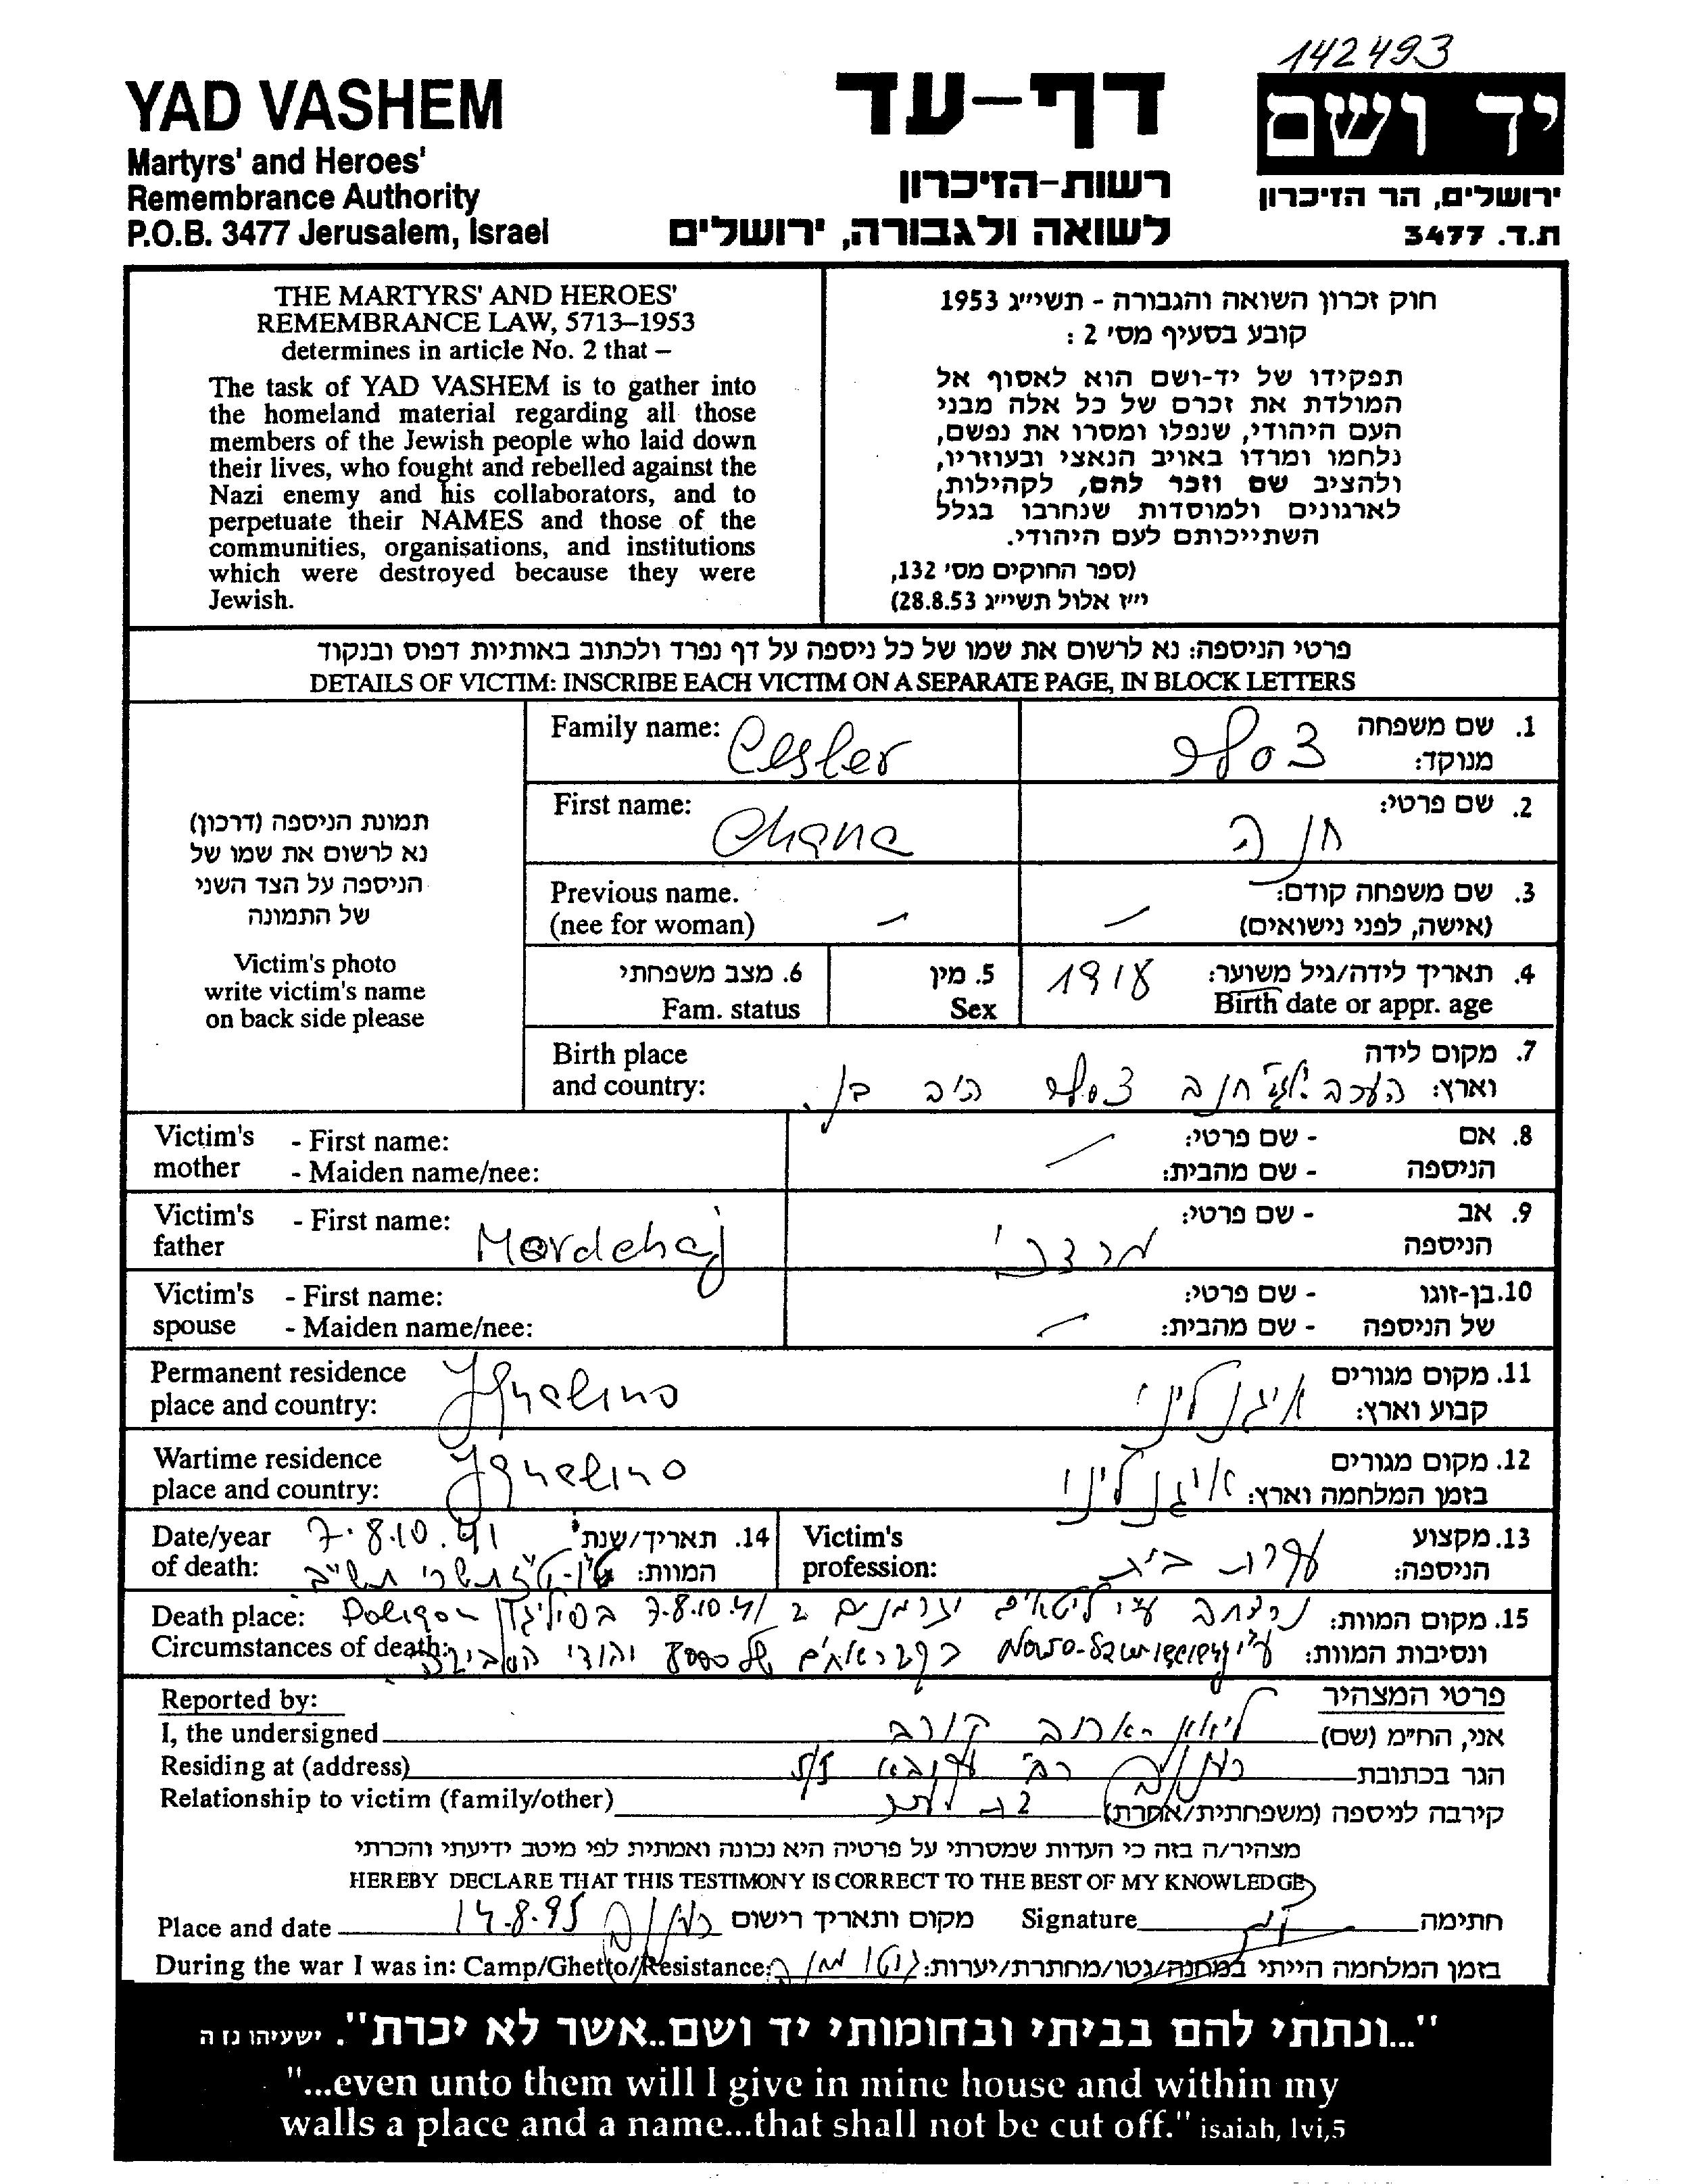 142493
YAD VASHEM
Martyrs' and Heroes'
Remembrance Authority
P.O.B. 3477 Jerusalem, Israel
דף-עד
רשות-הזיכרון
לשואה ולגבורה, ירושלים
יד ושם
ירושלים, הר הזיכרון
ת.ד. 3477
THE MARTYRS' AND HEROES'
REMEMBRANCE LAW, 5713–1953
determines in article No. 2 that –
The task of YAD VASHEM is to gather into
the homeland material regarding all those
members of the Jewish people who laid down
their lives, who fought and rebelled against the
Nazi enemy and his collaborators, and to
perpetuate their NAMES and those of the
communities, organisations, and institutions
which were destroyed because they were
Jewish.
חוק זכרון השואה והגבורה - תשי״ג 1953
קובע בסעיף מס׳ 2 :
תפקידו של יד-ושם הוא לאסוף אל
המולדת את זכרם של כל אלה מבני
העם היהודי, שנפלו ומסרו את נפשם,
נלחמו ומרדו באויב הנאצי ובעוזריו,
ולהציב שם וזכר להם, לקהילות,
לארגונים ולמוסדות שנחרבו בגלל
השתייכותם לעם היהודי.
(ספר החוקים מס׳ 132,
י״ז אלול תשי״ג 28.8.53)
פרטי הניספה: נא לרשום את שמו של כל ניספה על דף נפרד ולכתוב באותיות דפוס ובנקוד
DETAILS OF VICTIM: INSCRIBE EACH VICTIM ON A SEPARATE PAGE, IN BLOCK LETTERS
תמונת הניספה (דרכון)
נא לרשום את שמו של
הניספה על הצד השני
של התמונה
Victim's photo
write victim's name
on back side please
Family name: Cesler
1. שם משפחה מנוקד: צסלר
First name: Chana
2. שם פרטי: חנה
Previous name.
(nee for woman) –
3. שם משפחה קודם:
(אישה, לפני נישואים) –
6. מצב משפחתי
Fam. status
5. מין
Sex
4. תאריך לידה/גיל משוער: 1918
Birth date or appr. age
Birth place
and country:
7. מקום לידה
וארץ: חנה צסלר
Victim's mother - First name:
- Maiden name/nee:
8. אם הניספה - שם פרטי:
- שם מהבית: –
Victim's father - First name: Mordehaj
9. אב הניספה - שם פרטי: מרדכי
Victim's spouse - First name:
- Maiden name/nee:
10. בן-זוגו של הניספה - שם פרטי:
- שם מהבית: –
Permanent residence
place and country: Ignalino
11. מקום מגורים
קבוע וארץ: איגנליני
Wartime residence
place and country: Ignalino
12. מקום מגורים
בזמן המלחמה וארץ: איגנליני
Date/year
of death: 7.8.10.41
14. תאריך/שנת
המוות: תשרי תש״ב
Victim's
profession:
13. מקצוע
הניספה:
Death place: Poligon
Circumstances of death:
15. מקום המוות: נרצחה ע״י ליטאים וגרמנים ב 7-8.10.41 בפוליגון
ונסיבות המוות: ע״י Nowo- של 8000 יהודי הסביבה
Reported by:
פרטי המצהיר
I, the undersigned
אני, הח״מ (שם)
Residing at (address)
הגר בכתובת
Relationship to victim (family/other)
קירבה לניספה (משפחתית/אחרת)
מצהיר/ה בזה כי העדות שמסרתי על פרטיה היא נכונה ואמתית לפי מיטב ידיעתי והכרתי
HEREBY DECLARE THAT THIS TESTIMONY IS CORRECT TO THE BEST OF MY KNOWLEDGE
Place and date 14.8.95 מקום ותאריך רישום Signature חתימה
During the war I was in: Camp/Ghetto/Resistance: בזמן המלחמה הייתי במחנה/גטו/מחתרת/יערות:
"...ונתתי להם בביתי ובחומותי יד ושם..אשר לא יכרת". ישעיהו נז ה
"...even unto them will I give in mine house and within my
walls a place and a name...that shall not be cut off." isaiah, lvi,5